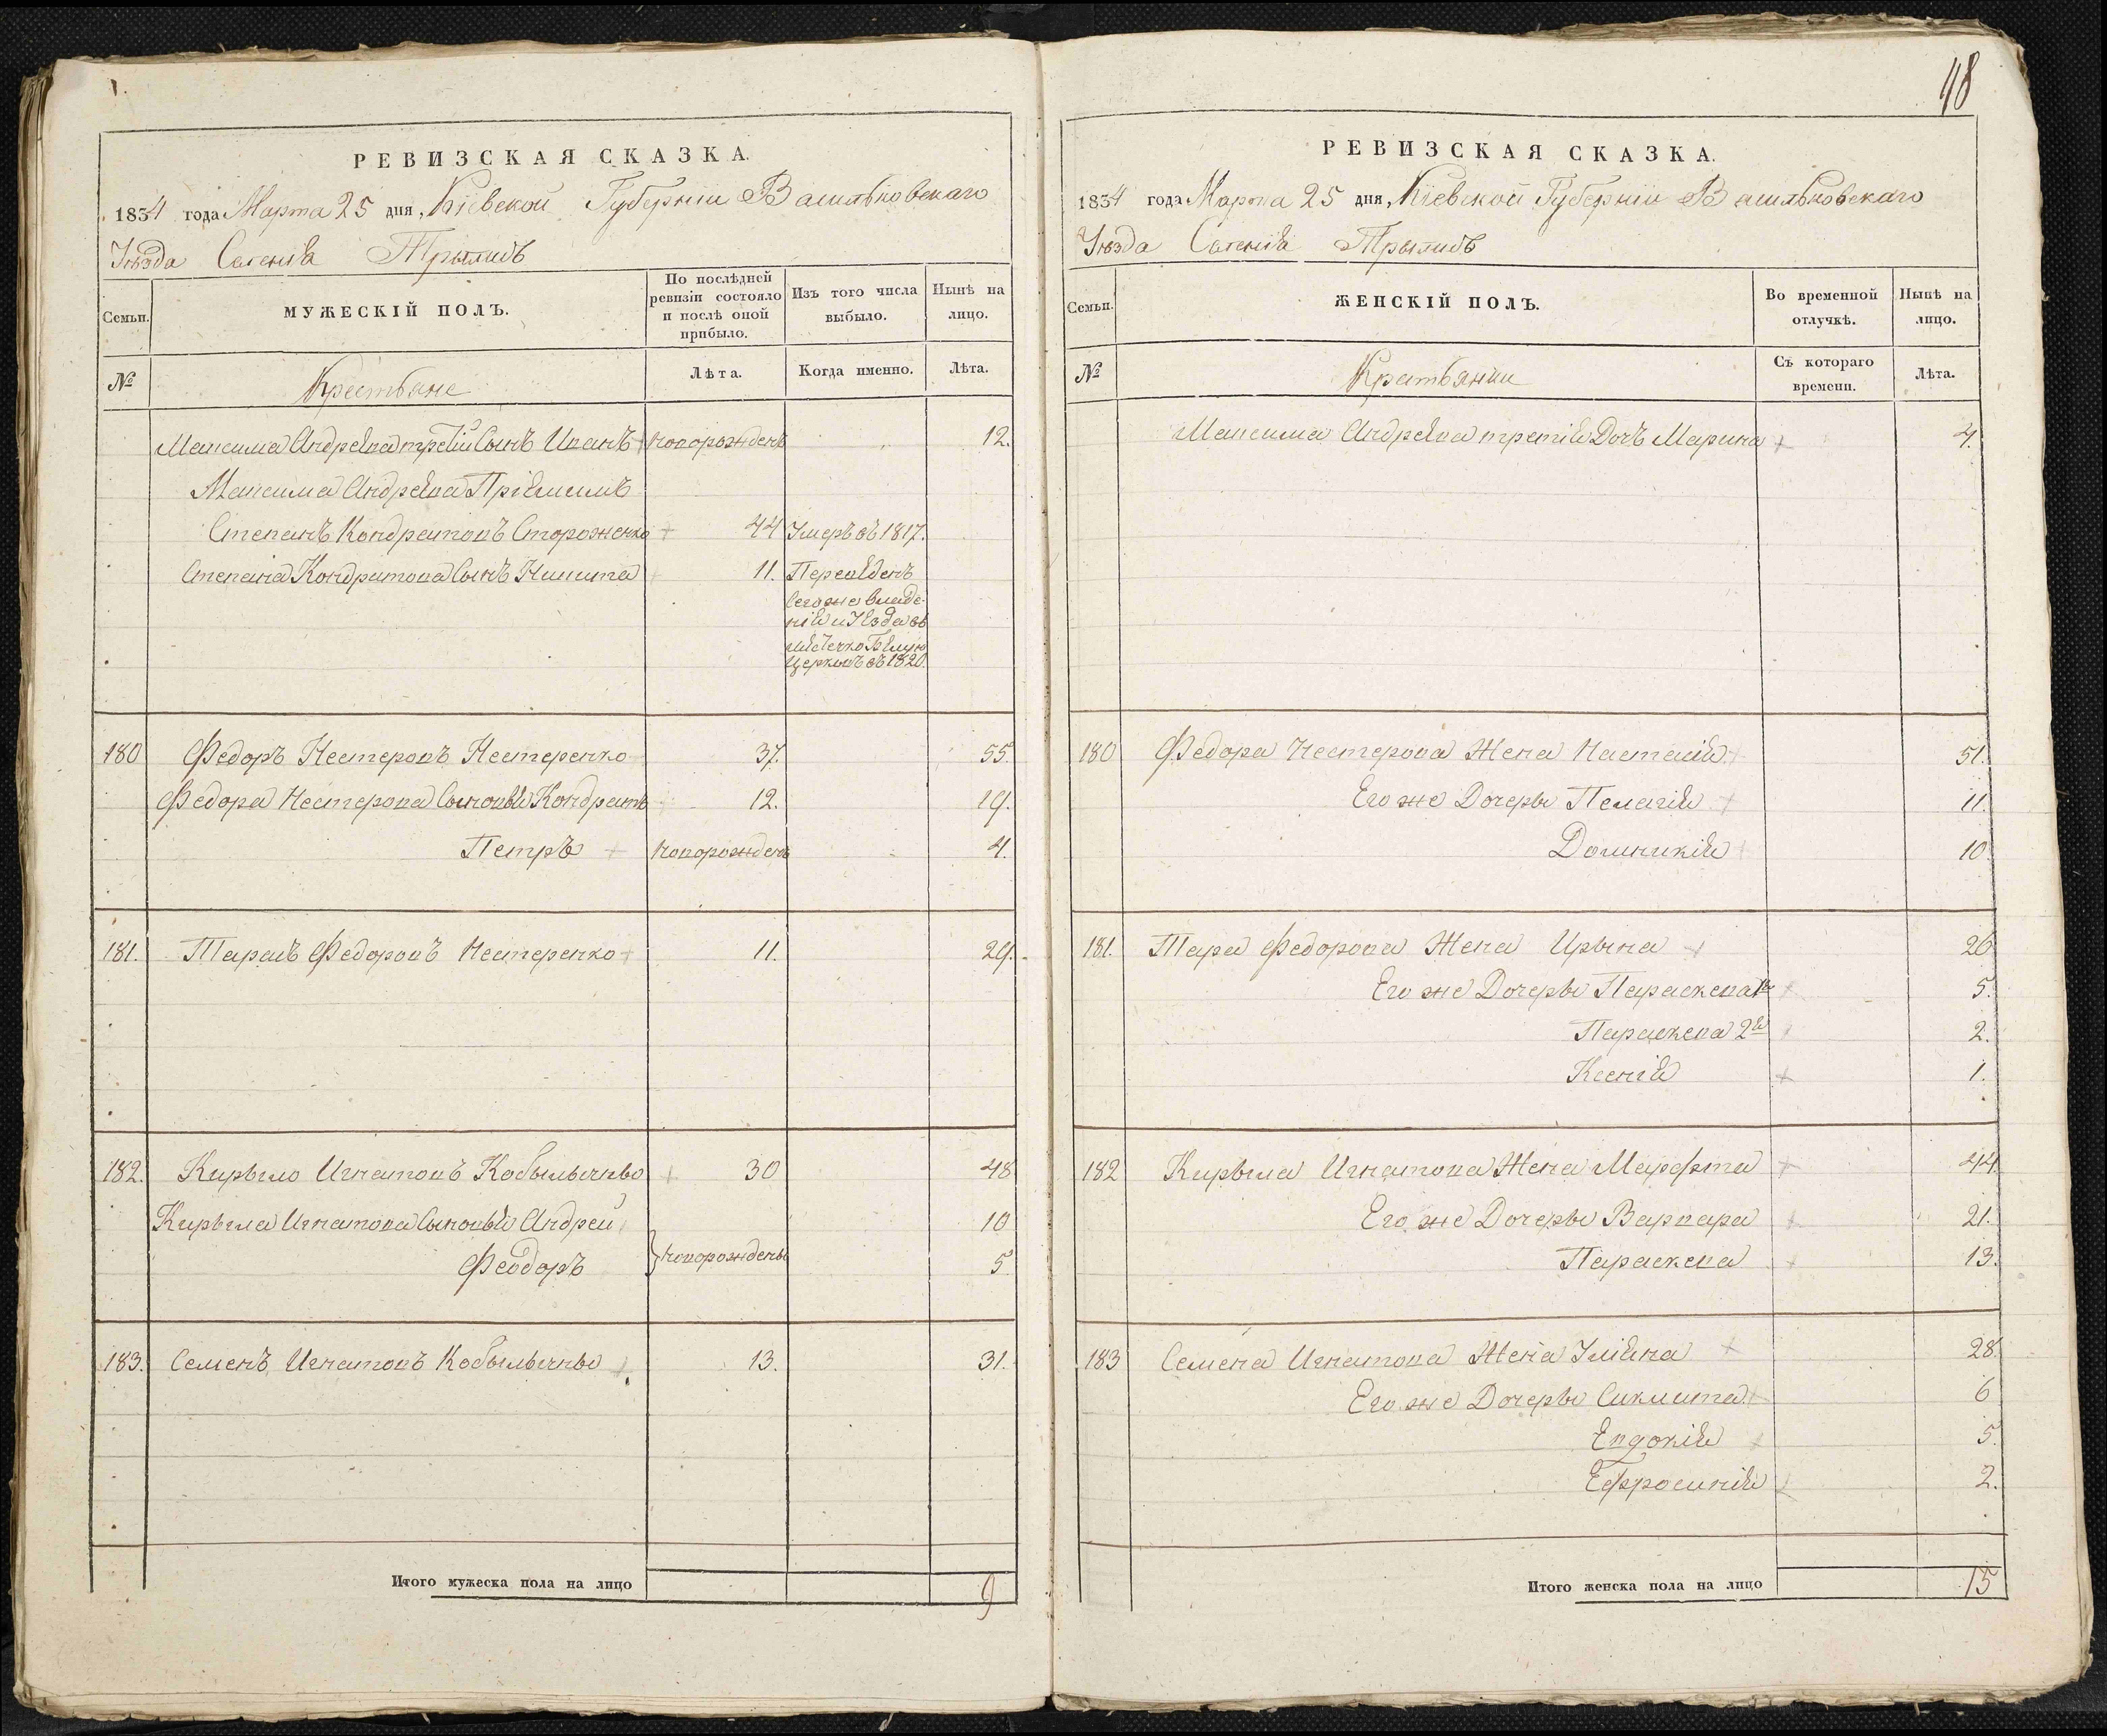 РЕВИЗСКАЯ СКАЗКА.
1834 года Марта 25 дня, Кіевской Губерніи Васильковскаго
Уѣзда Селенія Трылисъ
Семьи.
МУЖЕСКІЙ ПОЛЪ.
По послѣдней ревизіи состояло и послѣ оной прибыло.
Изъ того числа выбыло.
Нынѣ на лицо.
№
Крестьяне
Лѣта.
Когда именно.
Лѣта.
Максима Андреева третій Сынъ Иванъ новорожденъ 12.
Максима Андреева Пріймышъ
Степанъ Кондратовъ Стороженко 44 Умеръ въ 1817.
Степана Кондратова Сынъ Никита 11. Переведенъ
сегоже владе-
нія и Уѣзда въ
мѣстечко Бѣлую
Церковъ въ 1820.
180 Федоръ Нестеровъ Нестеренко 37. 55.
Федора Нестерова Сыновья Кондратъ 12. 19.
Петръ новорожденъ 4.
181. Тарасъ Федоровъ Нестеренко 11. 29.
182. Кирыло Игнатовъ 30 48
Кирыла Игнатова Сыновья Андрей 10
Феодоръ новорождены 5
183. Семенъ Игнатовъ 13. 31.
Итого мужеска пола на лицо 9
48
РЕВИЗСКАЯ СКАЗКА.
1834 года Марта 25 дня Кіевской Губерніи Васильковскаго
Уѣзда Селенія Трылисъ
Семьи.
ЖЕНСКІЙ ПОЛЪ.
Во временной отлучкѣ.
Нынѣ на лицо.
№
Крестьянки
Съ котораго времени.
Лѣта.
Максима Андреева третія Дочъ Марина 4.
180 Федора Нестерова Жена Настасія 51.
Его же Дочеры Пелагія 11.
Домникія 10.
181. Тара Федорова Жена Ирына 26
Его же Дочеры Параскева 1я 5.
Параскева 2я 2.
Ксенія 1.
182 Кирыла Игнатова Жена Марфта 44
Его же Дочеры Варвара 21.
Параскева 13.
183 Семена Игнатова Жена Уліяна 28.
Его же Дочеры 6
Евдокія 5.
Ефросинія 2.
Итого женска пола на лицо 15